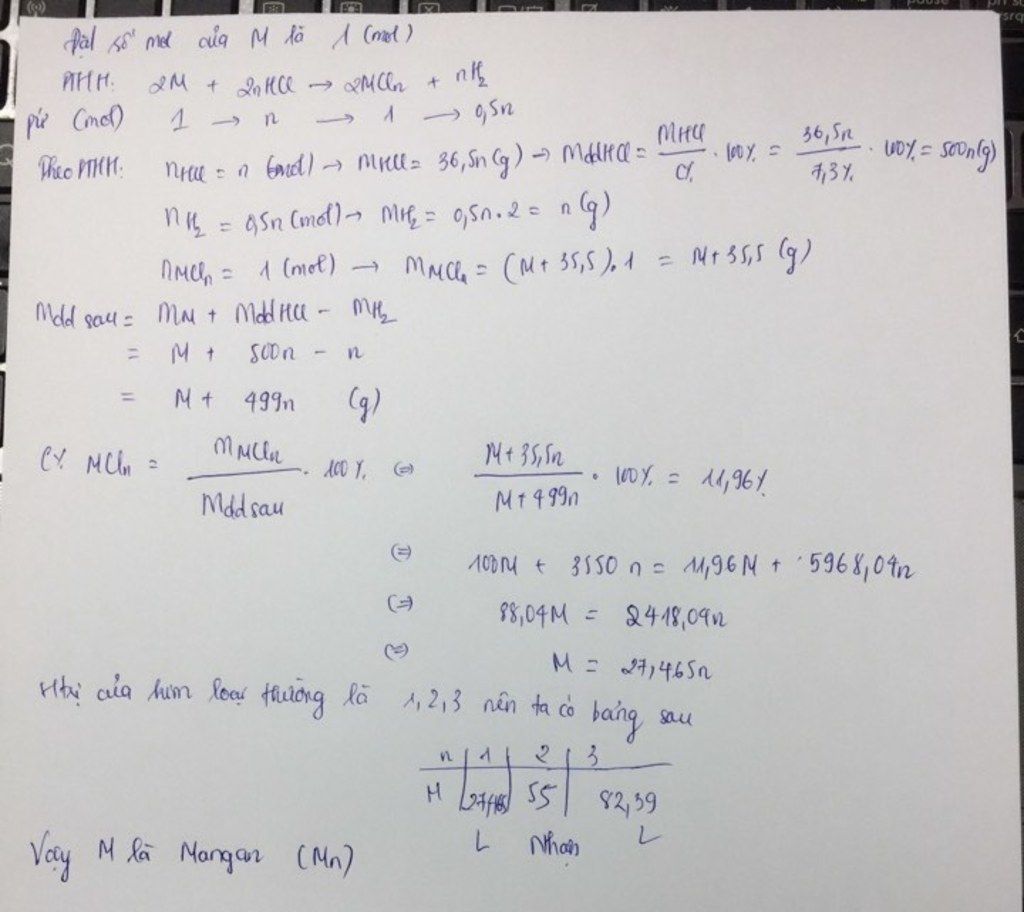 Đặt số mol của M là 1 (mol)
PTHH: 2M + 2nHCl → 2MCln + nH2
pứ (mol) 1 → n → 1 → 0,5n
Theo PTHH: nHCl = n (mol) → mHCl = 36,5n (g) → mddHCl = mHCl / C% . 100% = 36,5n / 7,3% . 100% = 500n (g)
nH2 = 0,5n (mol) → mH2 = 0,5n . 2 = n (g)
nMCln = 1 (mol) → mMCln = (M + 35,5).1 = M + 35,5 (g)
Mdd sau = mM + mddHCl - mH2
= M + 500n - n
= M + 499n (g)
C% MCln = mMCln / Mdd sau . 100% (=) M + 35,5n / M + 499n . 100% = 11,96%
(=) 100M + 3550n = 11,96M + 5968,04n
(=) 88,04M = 2418,04n
(=) M = 27,465n
Htrị của kim loại thường là 1, 2, 3 nên ta có bảng sau
n | 1 | 2 | 3
M | 27,465 | 55 | 82,39
L Nhận L
Vậy M là Mangan (Mn)